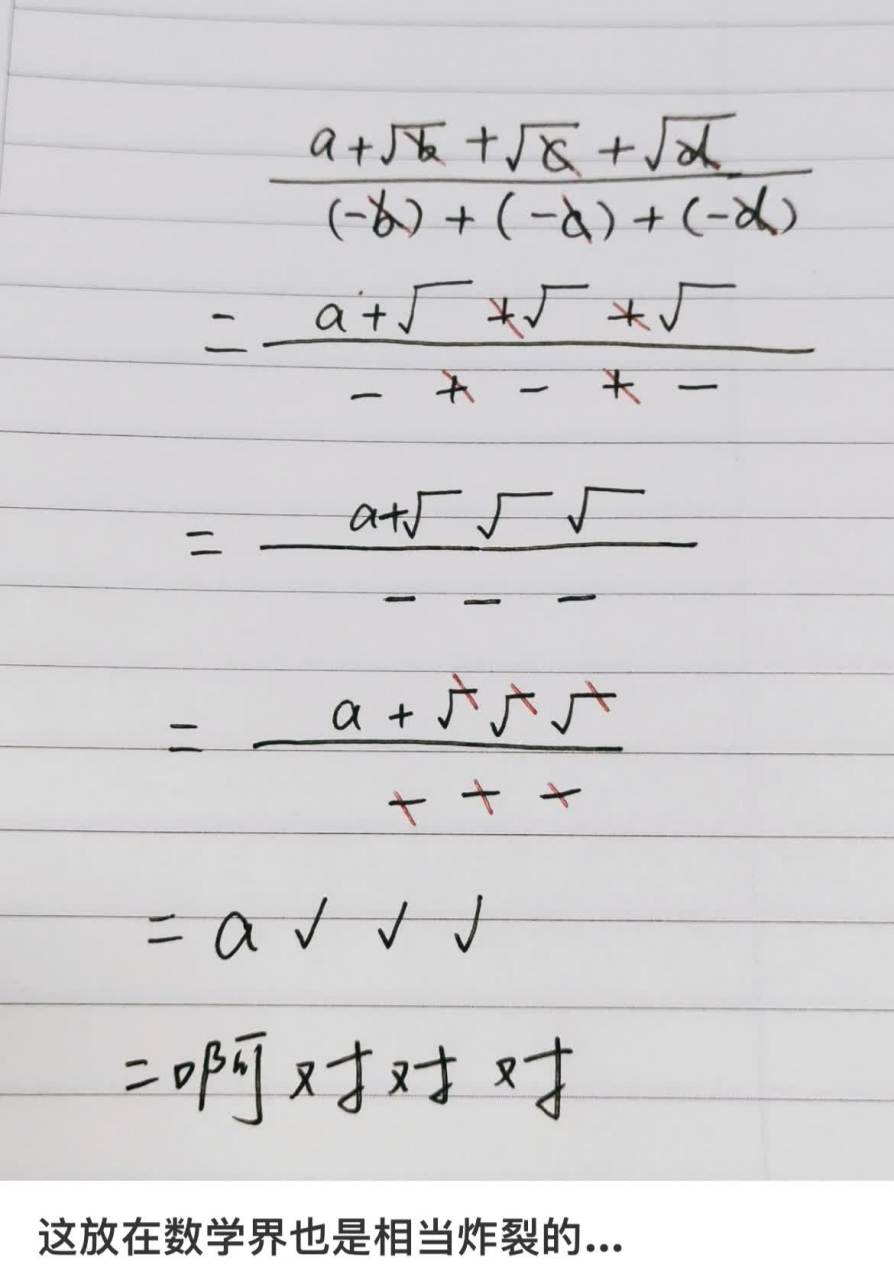 a+√b+√c+√d
(-b)+(-c)+(-d)
= a+√ +√ +√
- + - + -
= a+√ √ √
- - -
= a+√ √ √
- - -
= a √ √ √
=啊对对对
这放在数学界也是相当炸裂的...